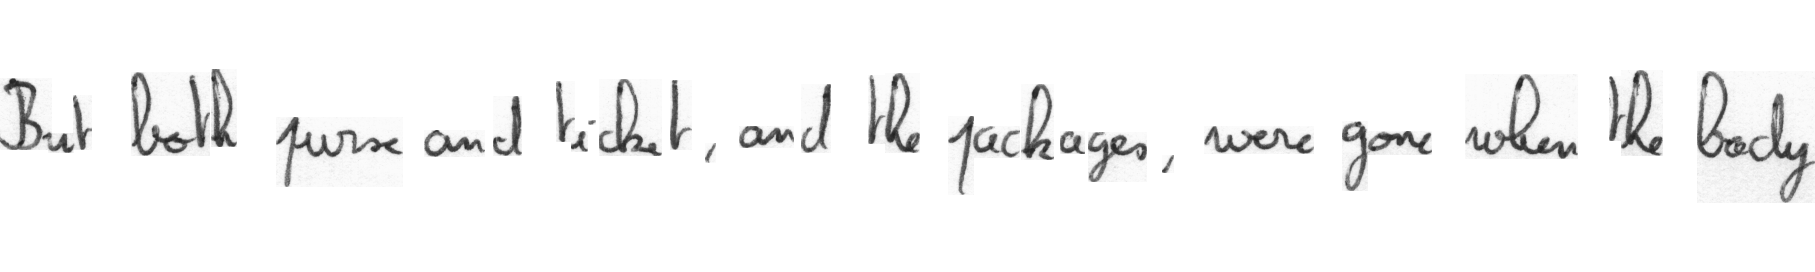 But both purse and ticket, and the packages, were gone when the body